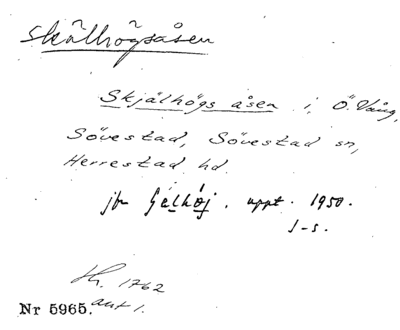 Skälhögsåsen
Skjälhögs åsen i Ö. Vång,
Sövestad, Sövestad sn,
Herrestad hd.
jfr Gälhöj. uppt. 1950.
J-s.
1762
akt 1.
Nr 5965.